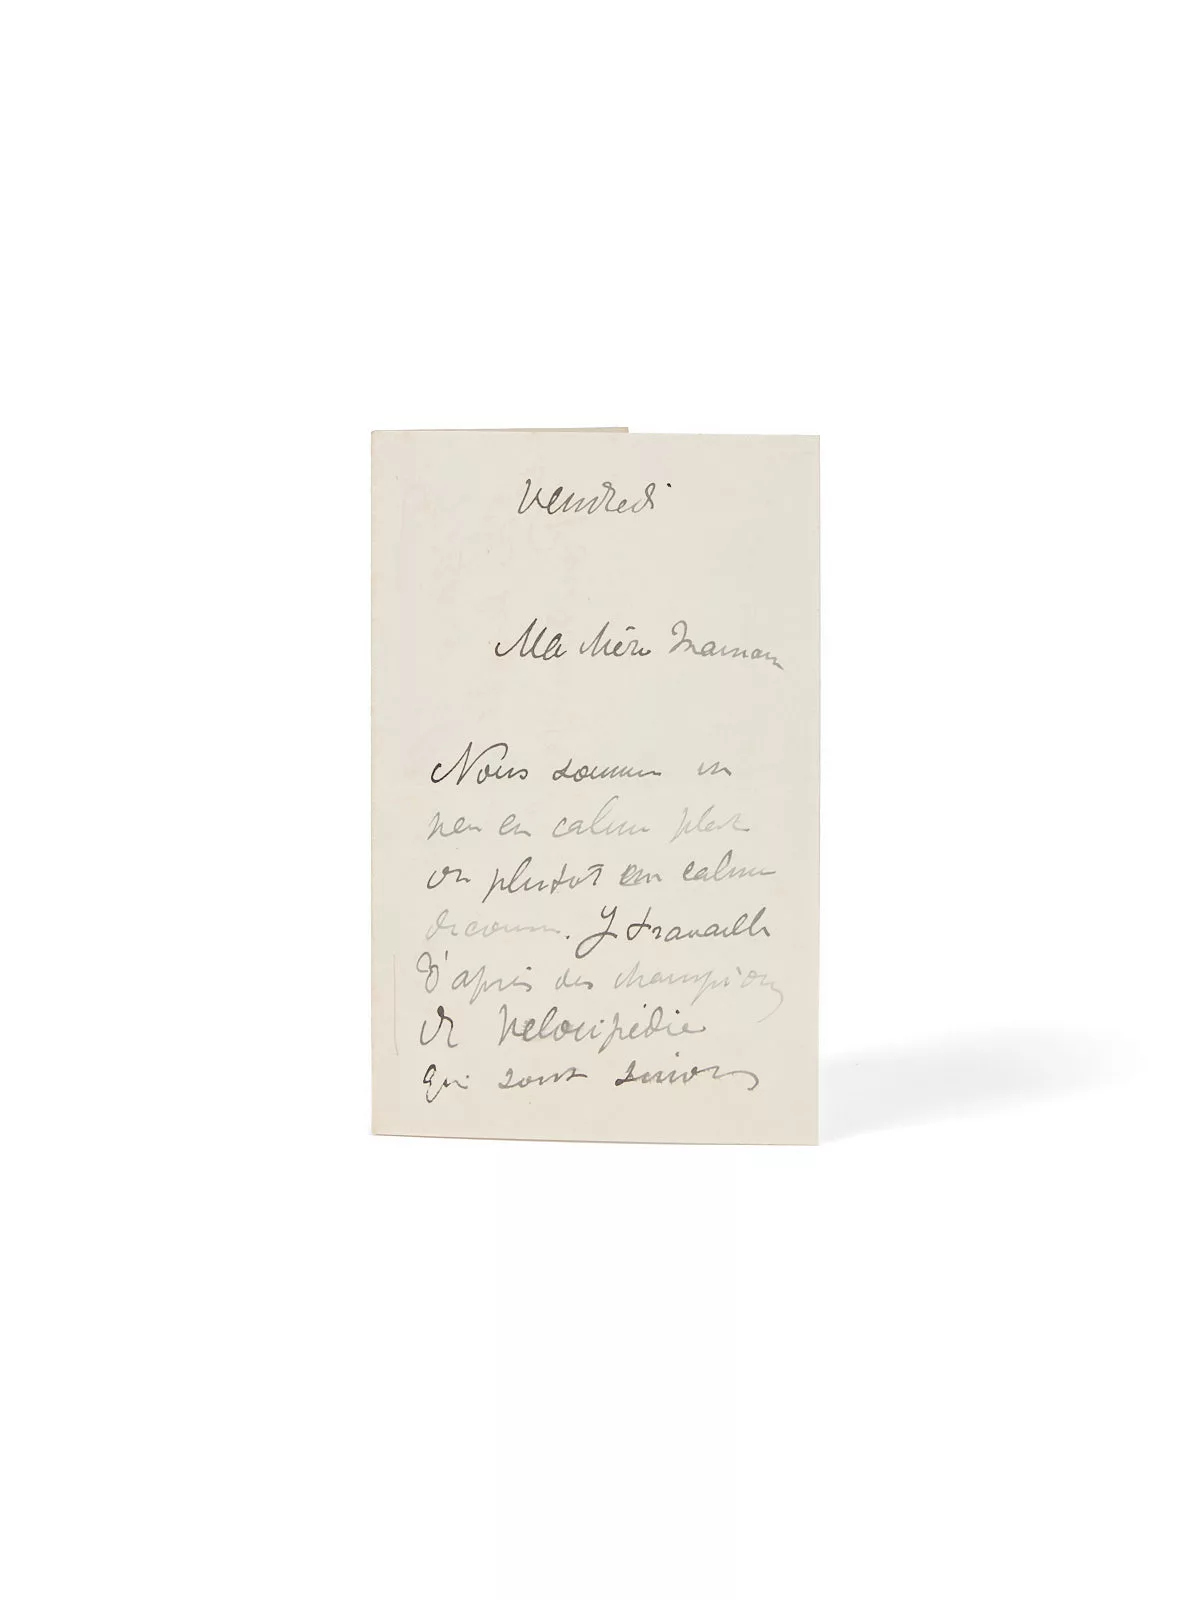 Vendredi
Ma chère Maman
Nous sommes un
peu en calme plat
ou plutôt en calme
de course. Je travaille
d'après des champions
de Velocipédie
qui sont